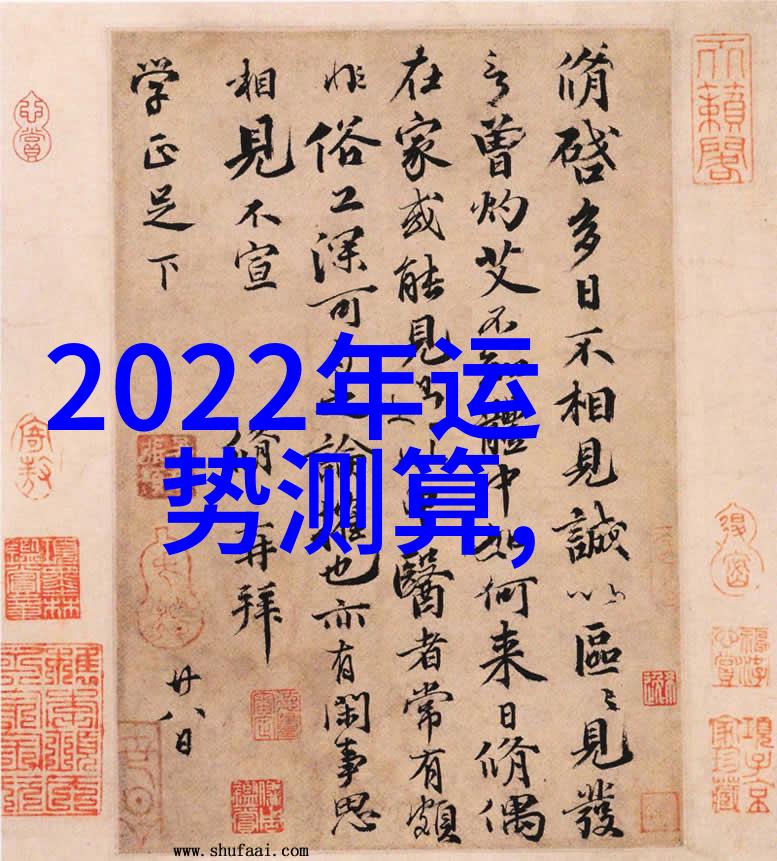 脩啓多日不相見誠以區〻見發
言曾灼艾不知體中如何来日脩偶
在家或能見醫者常有頗
非俗工深可之論榷也亦有閑事思
相見不宣
脩再拜
廿八日
学正足下
2022年运
势测算,
天籟閣
www.shufaai.com